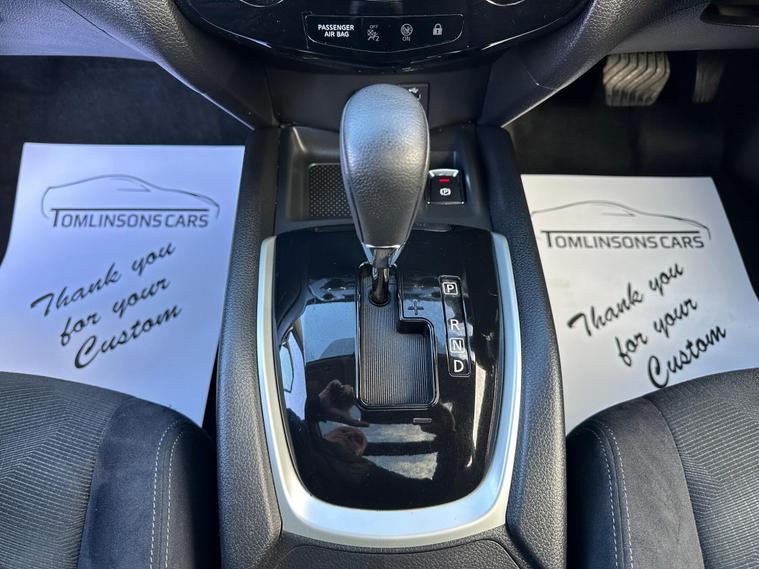 PASSENGER
AIR BAG
OFF
ON
TOMLINSONS CARS
Thank you
for your
Custom
P
R
N
D
+
−
TOMLINSONS CARS
Thank you
for your
Custom